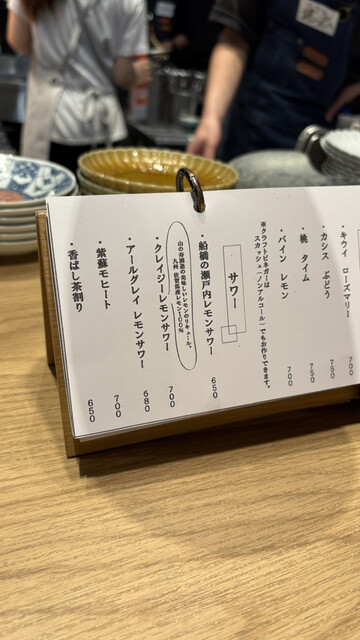 ・キウイ ローズマリー 700
・カシス ぶどう 750
・桃 タイム 750
・パイン レモン 700
※クラフトビネガーは
スカッシュ(ノンアルコール)でもお作りできます。
サワー
・船橋の瀬戸内レモンサワー 650
・クレイジーレモンサワー 700
山の寿酒造の美味しいレモンのリキュール。
九州 佐賀県産レモン100%
・アールグレイ レモンサワー 680
・紫蘇モヒート 700
・香ばし茶割り 650